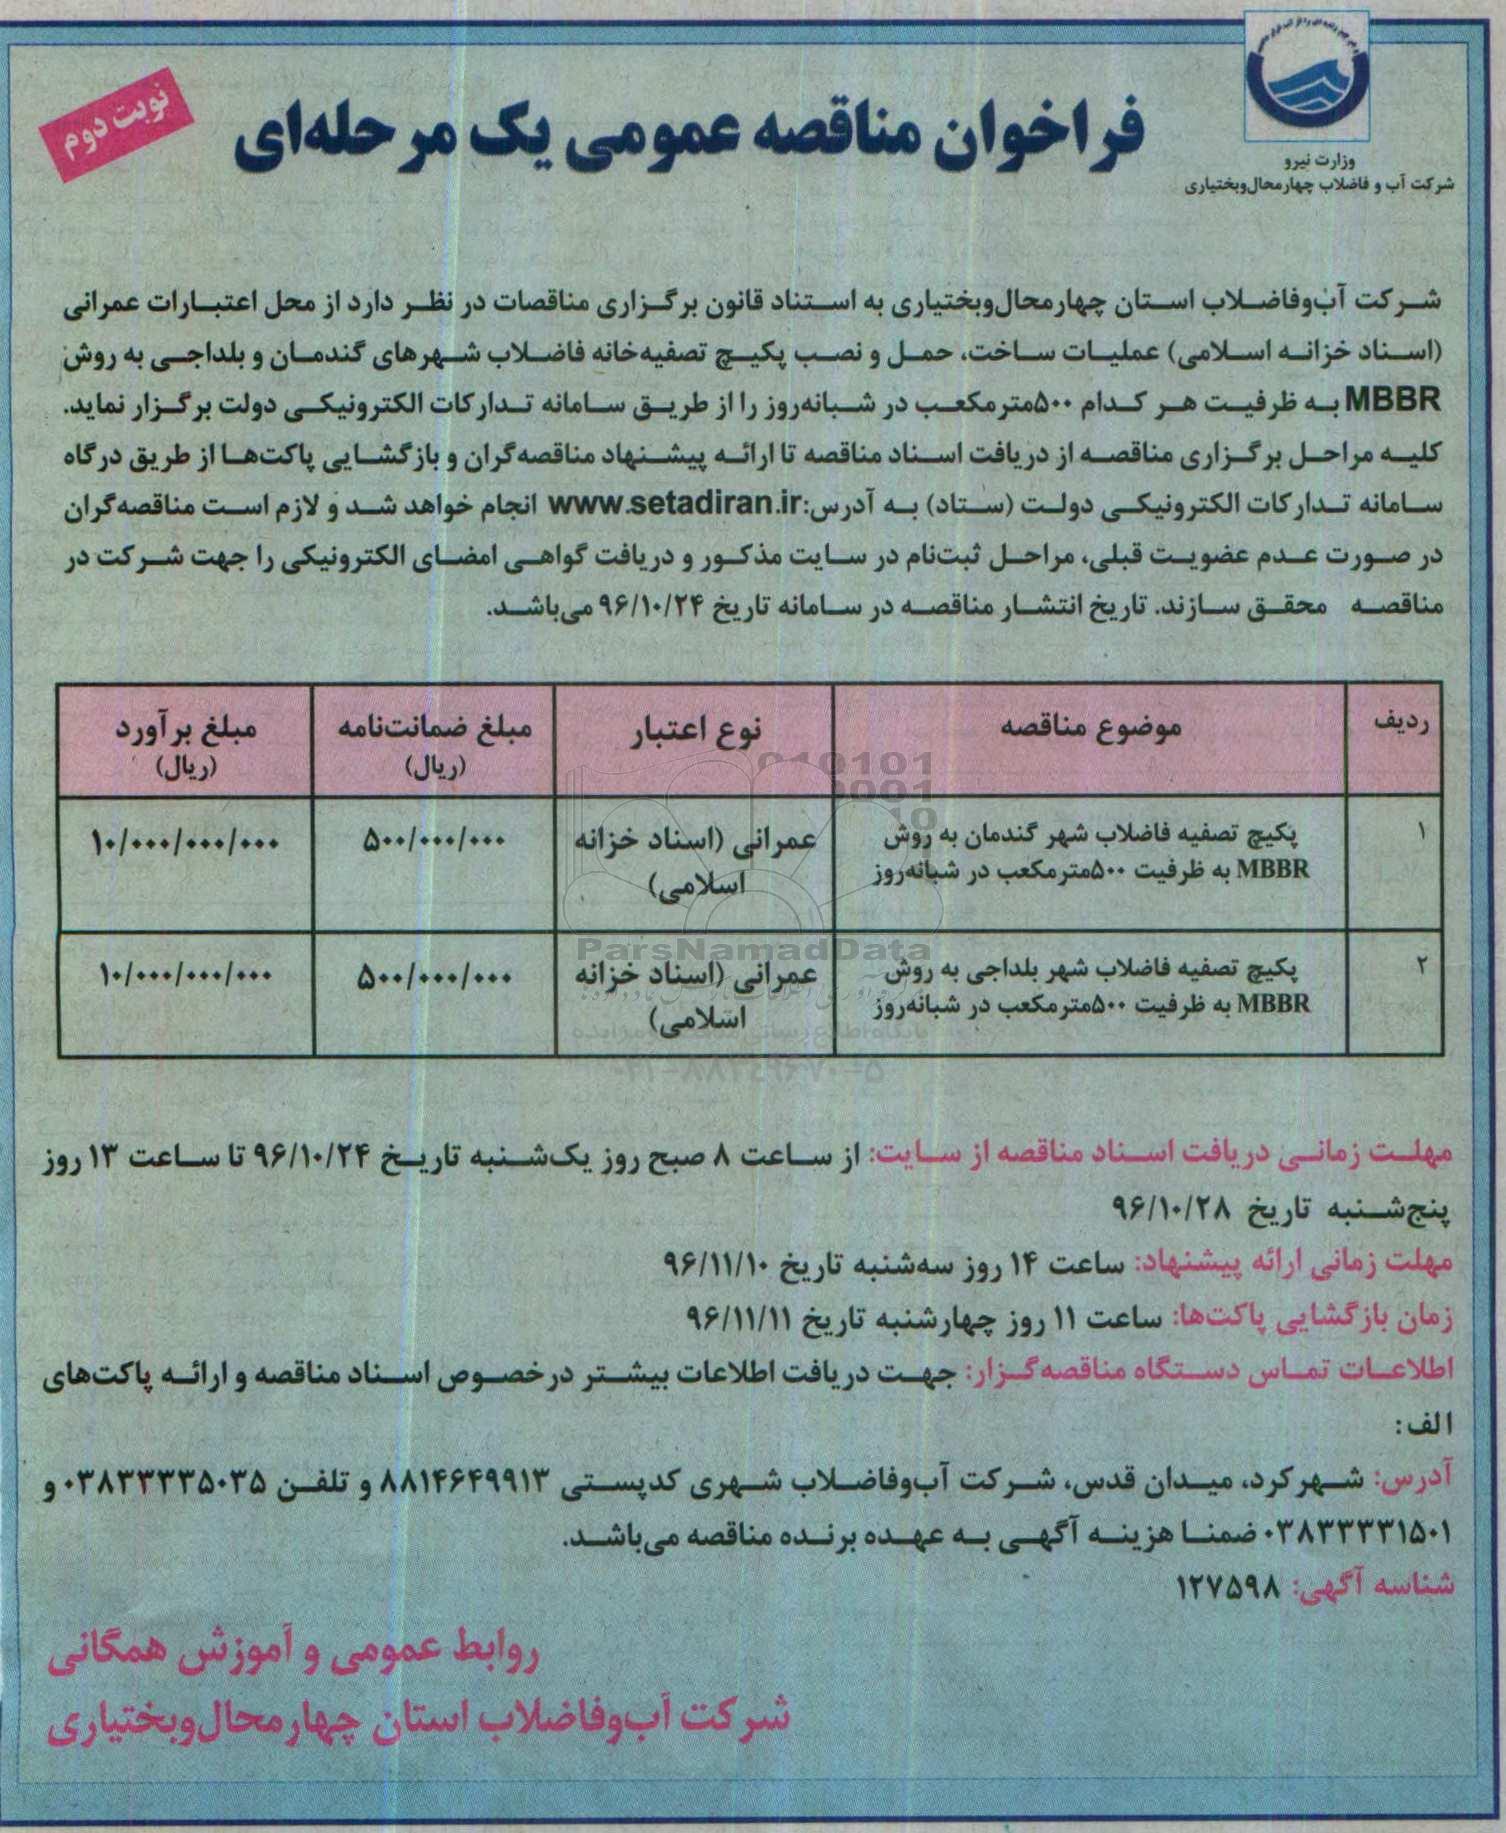 وزارت نیرو
شرکت آب و فاضلاب چهارمحال‌وبختیاری
فراخوان مناقصه عمومی یک مرحله‌ای
نوبت دوم
شرکت آب‌وفاضلاب استان چهارمحال‌وبختیاری به استناد قانون برگزاری مناقصات در نظر دارد از محل اعتبارات عمرانی
(اسناد خزانه اسلامی) عملیات ساخت، حمل و نصب پکیج تصفیه‌خانه فاضلاب شهرهای گندمان و بلداجی به روش
MBBR به ظرفیت هر کدام ۵۰۰مترمکعب در شبانه‌روز را از طریق سامانه تدارکات الکترونیکی دولت برگزار نماید.
کلیه مراحل برگزاری مناقصه از دریافت اسناد مناقصه تا ارائه پیشنهاد مناقصه‌گران و بازگشایی پاکت‌ها از طریق درگاه
سامانه تدارکات الکترونیکی دولت (ستاد) به آدرس:www.setadiran.ir انجام خواهد شد و لازم است مناقصه‌گران
در صورت عدم عضویت قبلی، مراحل ثبت‌نام در سایت مذکور و دریافت گواهی امضای الکترونیکی را جهت شرکت در
مناقصه محقق سازند. تاریخ انتشار مناقصه در سامانه تاریخ ۹۶/۱۰/۲۴ می‌باشد.
ردیف موضوع مناقصه نوع اعتبار مبلغ ضمانت‌نامه (ریال) مبلغ برآورد (ریال)
۱ پکیج تصفیه فاضلاب شهر گندمان به روش عمرانی (اسناد خزانه ۵۰۰/۰۰۰/۰۰۰ ۱۰/۰۰۰/۰۰۰/۰۰۰
MBBR به ظرفیت ۵۰۰مترمکعب در شبانه‌روز اسلامی)
۲ پکیج تصفیه فاضلاب شهر بلداجی به روش عمرانی (اسناد خزانه ۵۰۰/۰۰۰/۰۰۰ ۱۰/۰۰۰/۰۰۰/۰۰۰
MBBR به ظرفیت ۵۰۰مترمکعب در شبانه‌روز اسلامی)
ParsNamadData
۰۲۱-۸۸۳۴۹۶۷۰-۵
مهلت زمانی دریافت اسناد مناقصه از سایت: از ساعت ۸ صبح روز یک‌شنبه تاریخ ۹۶/۱۰/۲۴ تا ساعت ۱۳ روز
پنج‌شنبه تاریخ ۹۶/۱۰/۲۸
مهلت زمانی ارائه پیشنهاد: ساعت ۱۴ روز سه‌شنبه تاریخ ۹۶/۱۱/۱۰
زمان بازگشایی پاکت‌ها: ساعت ۱۱ روز چهارشنبه تاریخ ۹۶/۱۱/۱۱
اطلاعات تماس دستگاه مناقصه‌گزار: جهت دریافت اطلاعات بیشتر درخصوص اسناد مناقصه و ارائه پاکت‌های
الف:
آدرس: شهرکرد، میدان قدس، شرکت آب‌وفاضلاب شهری کدپستی ۸۸۱۴۶۴۹۹۱۳ و تلفن ۰۳۸۳۳۳۳۵۰۳۵ و
۰۳۸۳۳۳۳۱۵۰۱ ضمنا هزینه آگهی به عهده برنده مناقصه می‌باشد.
شناسه آگهی: ۱۲۷۵۹۸
روابط عمومی و آموزش همگانی
شرکت آب‌وفاضلاب استان چهارمحال‌وبختیاری